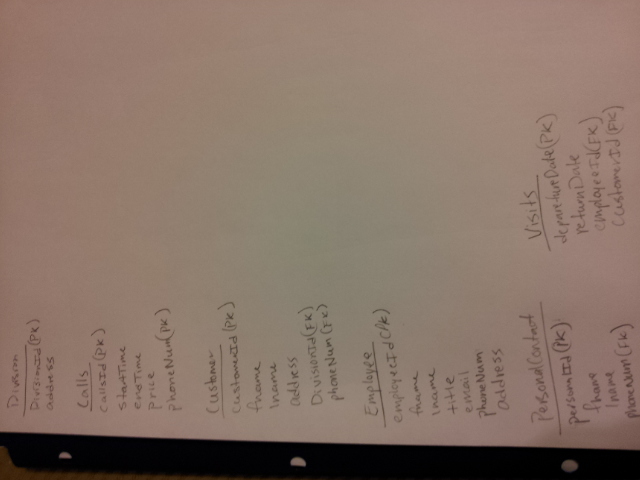 Division
DivisionId(PK)
address
Calls
callsId(PK)
startTime
endTime
price
phoneNum(PK)
Customer
customerId(PK)
fname
lname
address
DivisionId(FK)
phoneNum(FK)
Employee
employeeId(PK)
fname
lname
title
email
phoneNum
address
PersonalContact
personalId(PK)
fname
lname
phoneNum(FK)
Visits
deparetureDate(PK)
returnDate
employeeId(FK)
customerId(FK)